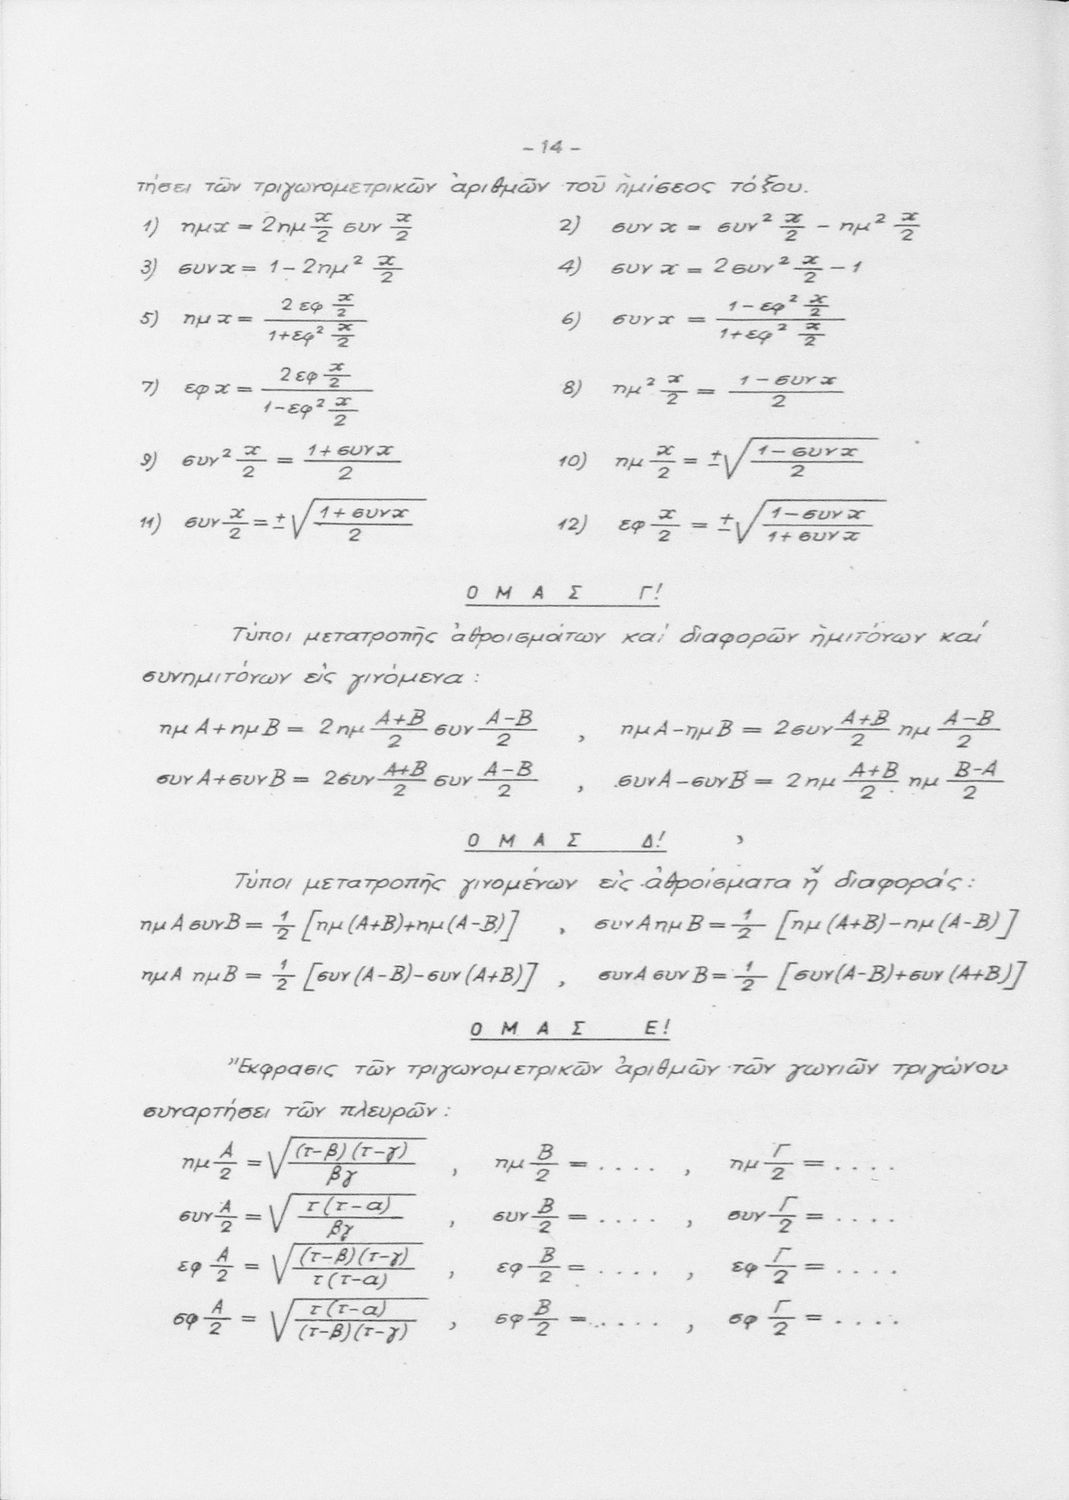 - 14 -
τήσει τῶν τριγωνομετρικῶν ἀριθμῶν τοῦ ἡμίσεος τόξου.
1) ημx = 2ημ x/2 συν x/2 2) συν x = συν² x/2 - ημ² x/2
3) συνx = 1 - 2ημ² x/2 4) συν x = 2συν² x/2 - 1
5) ημ x = (2 εφ x/2)/(1+εφ² x/2) 6) συν x = (1 - εφ² x/2)/(1+εφ² x/2)
7) εφ x = (2εφ x/2)/(1-εφ² x/2) 8) ημ² x/2 = (1 - συν x)/2
9) συν² x/2 = (1+συνx)/2 10) ημ x/2 = ±√((1 - συν x)/2)
11) συν x/2 = ±√((1 + συνx)/2) 12) εφ x/2 = ±√((1-συν x)/(1+συν x))
ΟΜΑΣ Γ!
Τύποι μετατροπῆς ἀθροισμάτων καί διαφορῶν ἡμιτόνων καί
συνημιτόνων εἰς γινόμενα :
ημ A + ημ B = 2ημ (A+B)/2 συν (A-B)/2 , ημA-ημB = 2συν (A+B)/2 ημ (A-B)/2
συνA+συνB = 2συν (A+B)/2 συν (A-B)/2 , συνA-συνB = 2ημ (A+B)/2 ημ (B-A)/2
ΟΜΑΣ Δ!
Τύποι μετατροπῆς γινομένων εἰς ἀθροίσματα ἤ διαφοράς :
ημ A συνB = 1/2 [ημ(A+B)+ημ(A-B)] , συν A ημ B = 1/2 [ημ(A+B)-ημ(A-B)]
ημA ημB = 1/2 [συν(A-B)-συν(A+B)] , συνA συν B = 1/2 [συν(A-B)+συν(A+B)]
ΟΜΑΣ Ε!
Ἔκφρασις τῶν τριγωνομετρικῶν ἀριθμῶν τῶν γωνιῶν τριγώνου
συναρτήσει τῶν πλευρῶν :
ημ A/2 = √((τ-β)(τ-γ)/βγ) , ημ B/2 = .... , ημ Γ/2 = ....
συν A/2 = √(τ(τ-α)/βγ) , συν B/2 = .... , συν Γ/2 = ....
εφ A/2 = √((τ-β)(τ-γ)/τ(τ-α)) , εφ B/2 = .... , εφ Γ/2 = ....
σφ A/2 = √(τ(τ-α)/(τ-β)(τ-γ)) , σφ B/2 = .... , σφ Γ/2 = ....